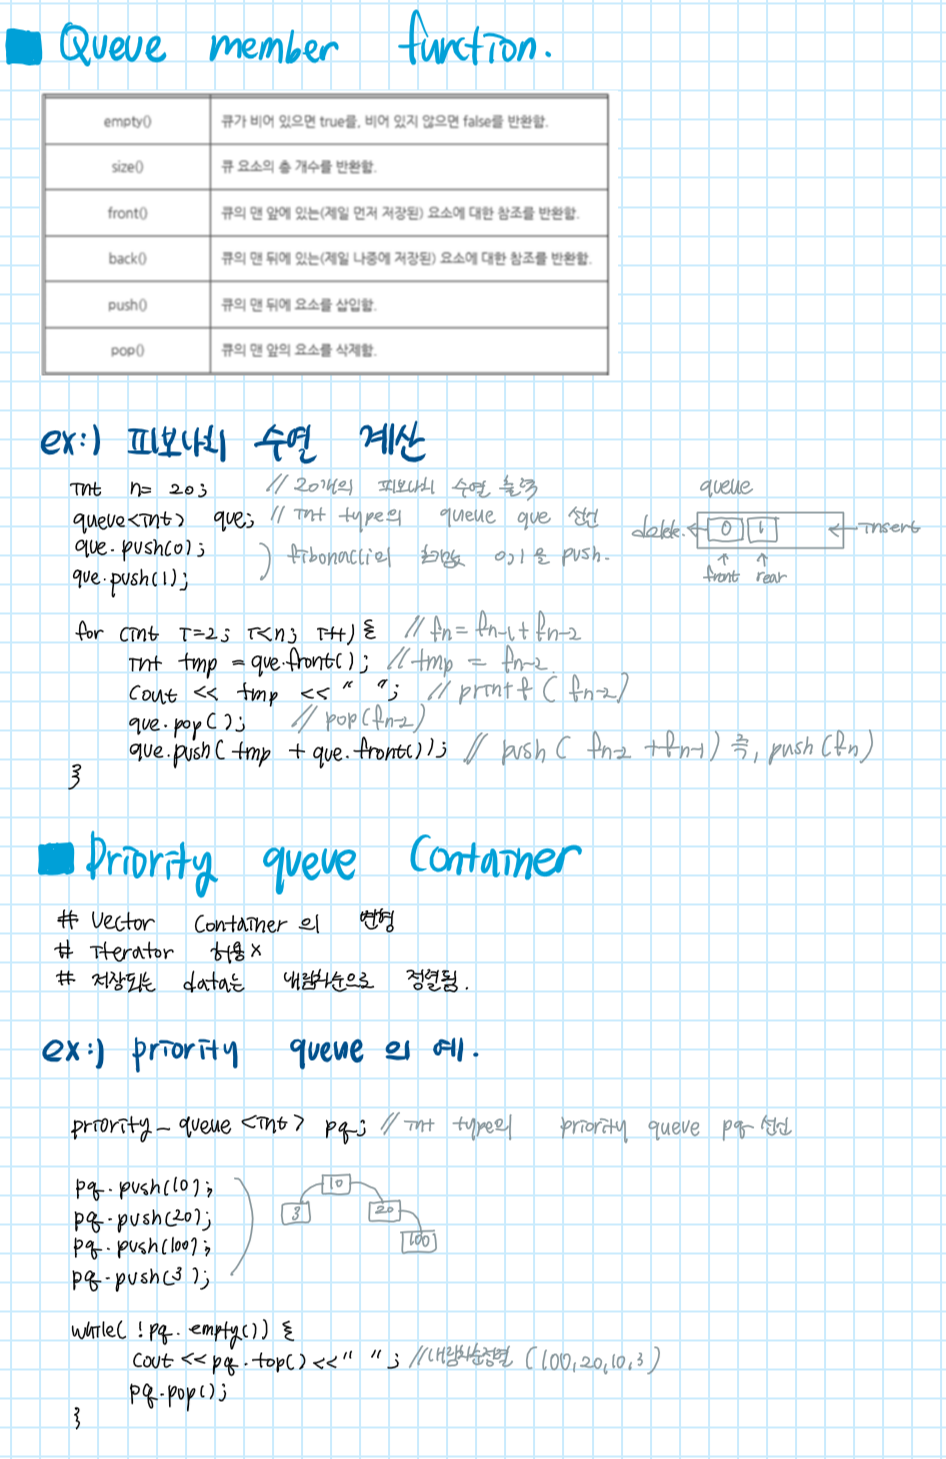 Queue member function.
empty() 큐가 비어 있으면 true를, 비어 있지 않으면 false를 반환함.
size() 큐 요소의 총 개수를 반환함.
front() 큐의 맨 앞에 있는(제일 먼저 저장된) 요소에 대한 참조를 반환함.
back() 큐의 맨 뒤에 있는(제일 나중에 저장된) 요소에 대한 참조를 반환함.
push() 큐의 맨 뒤에 요소를 삽입함.
pop() 큐의 맨 앞의 요소를 삭제함.
ex:) 피보나치 수열 계산
int n= 20; // 20개의 피보나치 수열 출력
queue<int> que; // int type의 queue que 선언
que.push(0);
que.push(1);
) fibonacci의 초기값 0,1을 push.
queue
delete. ← 0 1 ← insert
↑ ↑
front rear
for (int i=2; i<n; i++) { // fn = fn-1 + fn-2
int tmp = que.front(); // tmp = fn-2
cout << tmp << " "; // printf (fn-2)
que.pop(); // pop(fn-2)
que.push( tmp + que.front()); // push ( fn-2 + fn-1) 즉, push(fn)
}
Priority queue Container
# Vector Container의 변형
# iterator 허용 X
# 저장되는 data는 내림차순으로 정렬됨.
ex:) priority queue의 예.
priority_queue <int> pq; // int type의 priority queue pq 선언
pq.push(10);
pq.push(20);
pq.push(100);
pq.push(3);
10
3 20
100
while( !pq.empty()) {
cout << pq.top() << " "; //내림차순정렬 (100,20,10,3)
pq.pop();
}